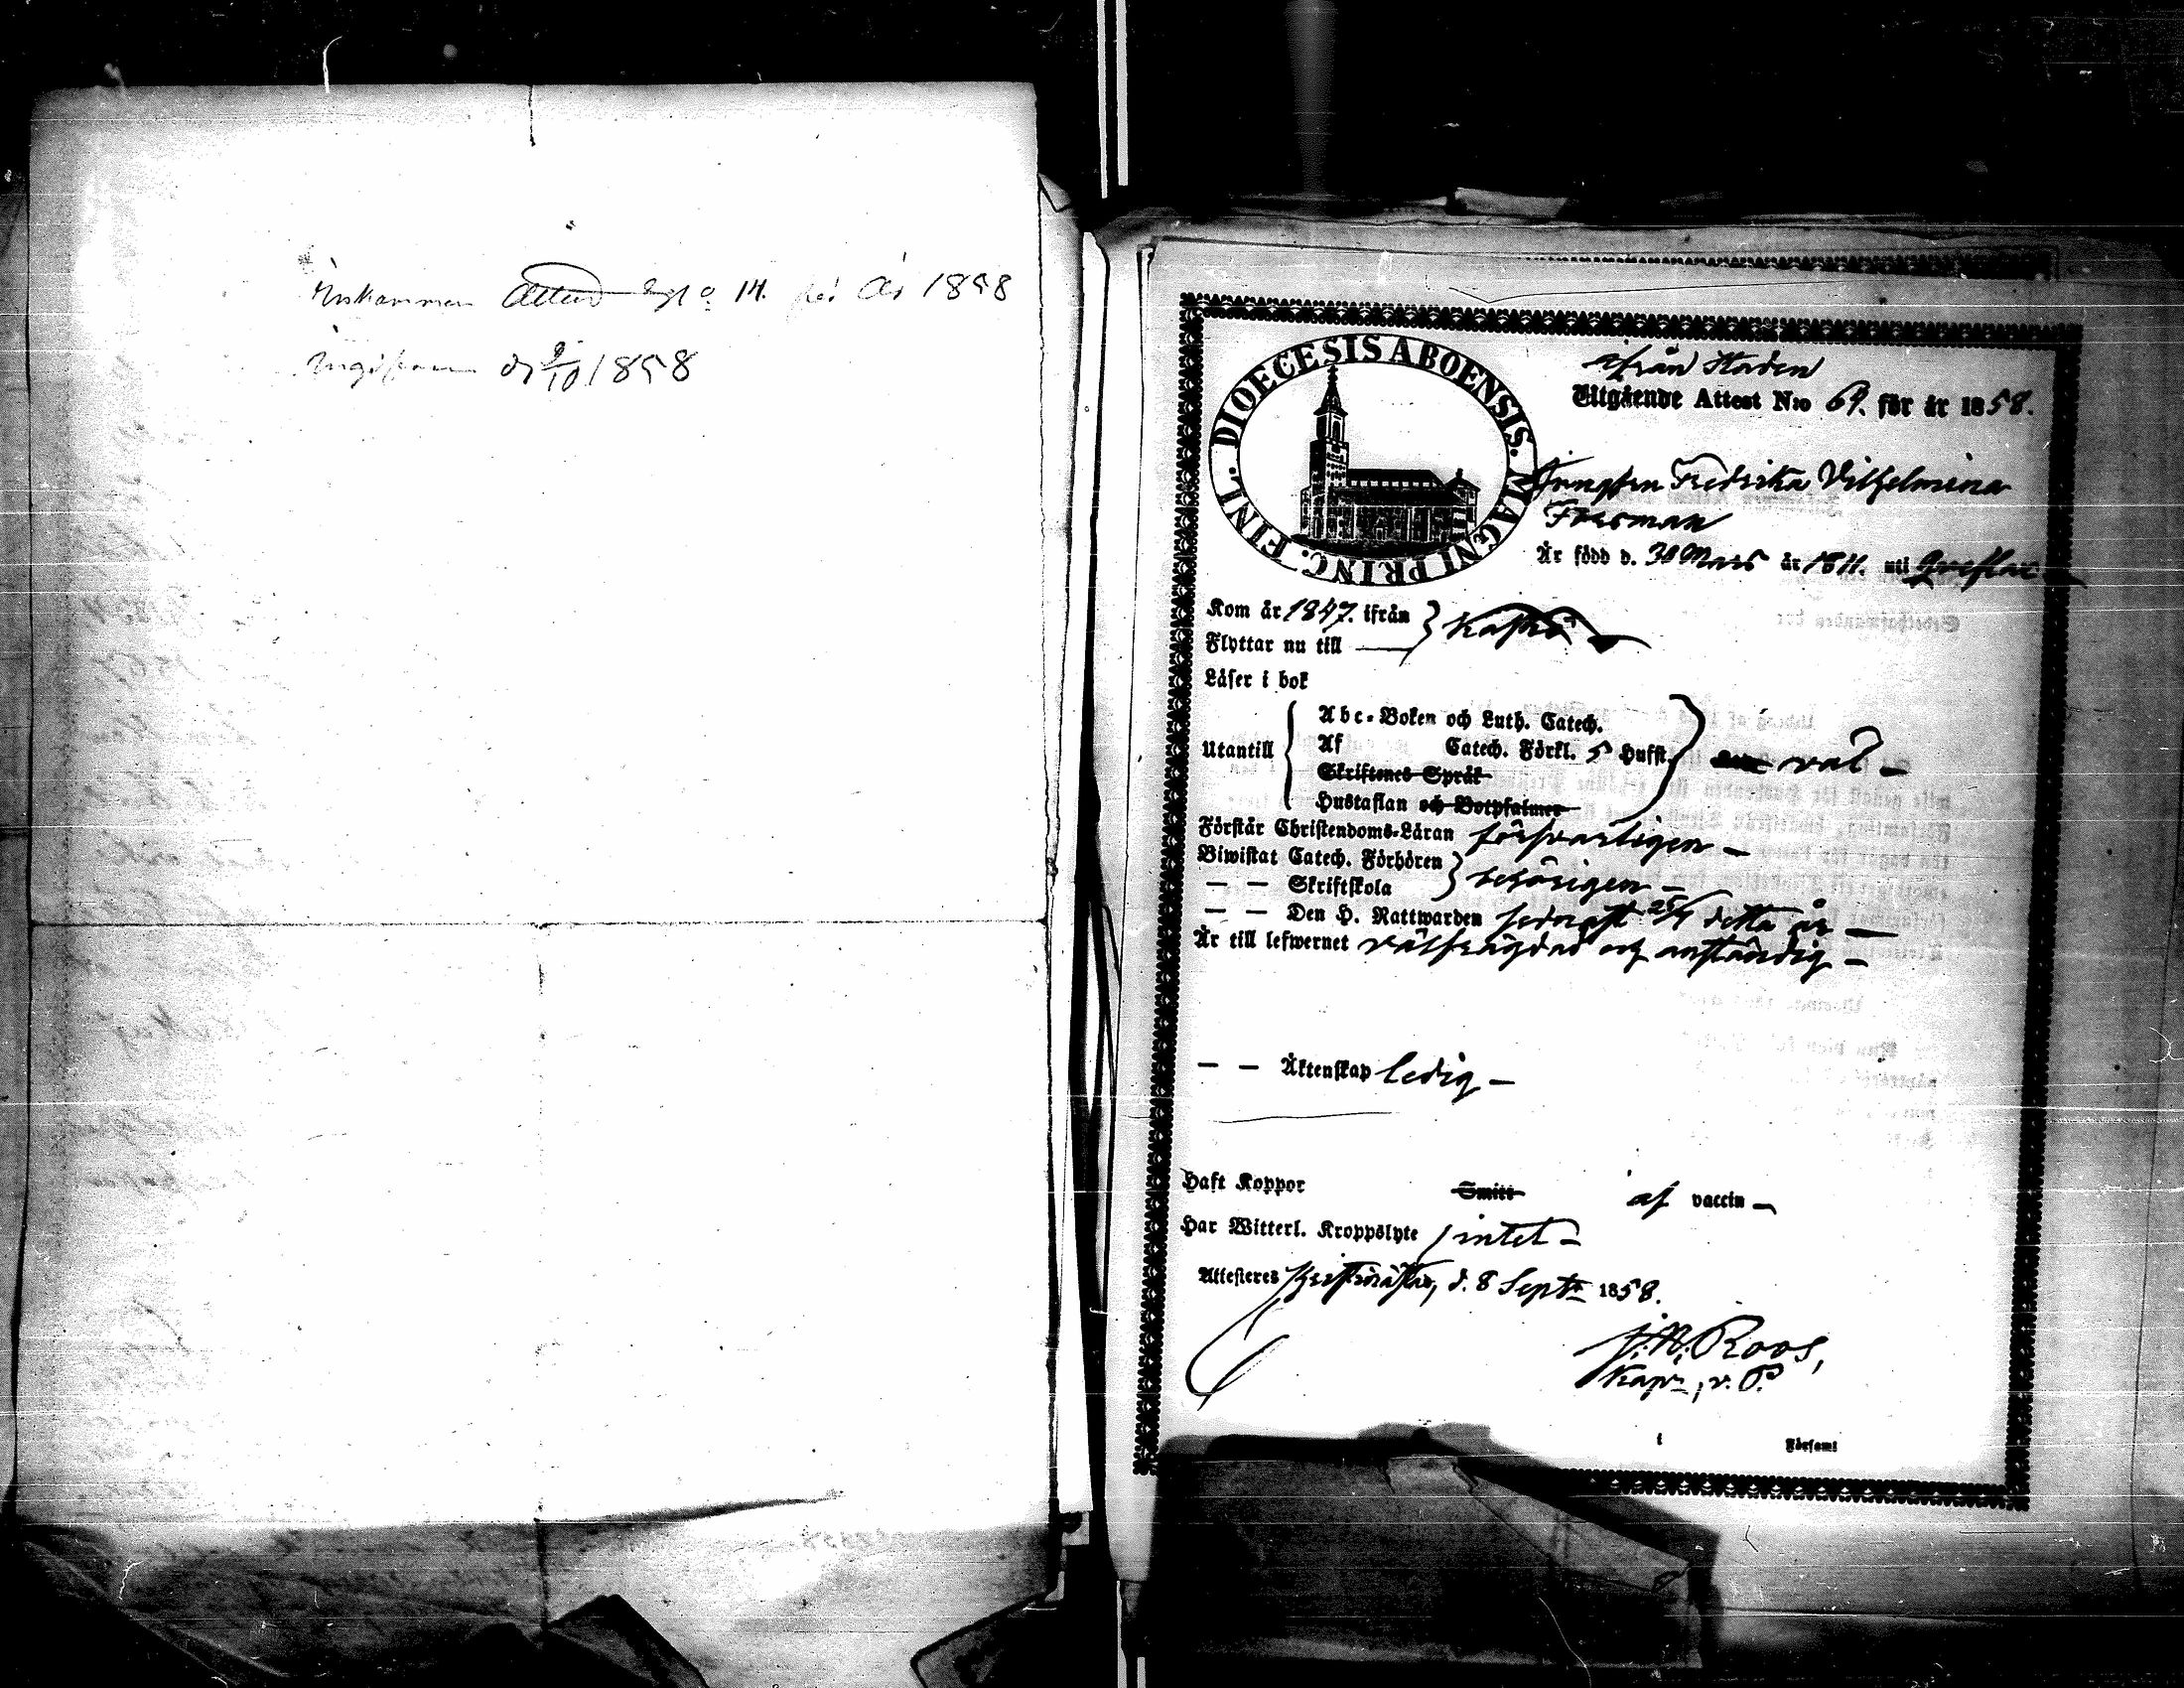 Inkommen Attest No 14. för År 1858
Ingifven d 9/10 1858
DIOECESIS ABOENSIS. MAGNI PRINC. FINL.
ifrån Staden
Utgående Attest N:o 69. för år 1858.
Jungfrun Fredrika Vilhelmina
Forsman
Är född d. 30 Mars år 1811. uti Qveflax
Kom år 1847. ifrån
Flyttar nu till Kaskö
Läser i bok
Utantill
Abc-Boken och Luth. Catech.
Af Catech. Förkl. 5 Hufst. väl
Skriftenes Språk
Hustaflan och Botpsalmer
Förstår Christendoms-Läran försvarligen
Biwistat Catech. Förhören
— — Skriftskola behörigen
— — Den H. Nattwarden sednast 25/4 detta år
Är till lefwernet välfrägdad och anständig
— — Äktenskap ledig
Haft Koppor Smitt af vaccin
Har Witterl. Kroppslyte intet
Attesteres Kristinestad, d. 8 Septr 1858.
Roos,
Kapn, v. P.
i Församl